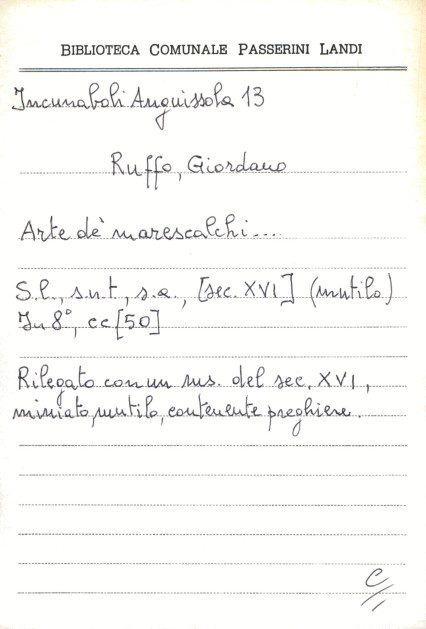 BIBLIOTECA COMUNALE PASSERINI LANDI
Incunaboli Anguissola 13
Ruffo, Giordano
Arte dè marescalchi....
S.l., s.n.t., s.a., [sec. XVI] (mutilo)
In 8°, cc [50]
Rilegato con un ms. del sec. XVI,
miniato, mutilo, contenente preghiere.
C